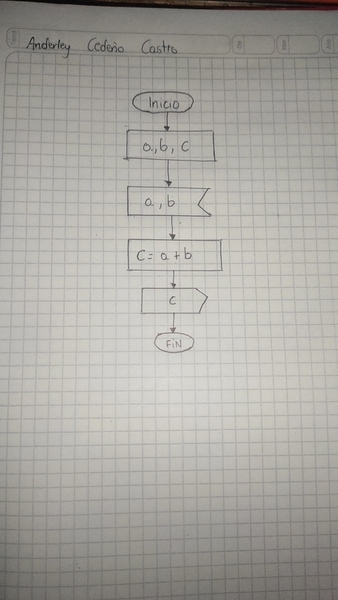 Anderley Cedeño Castro
Inicio
a, b, c
a, b
c = a + b
c
FiN